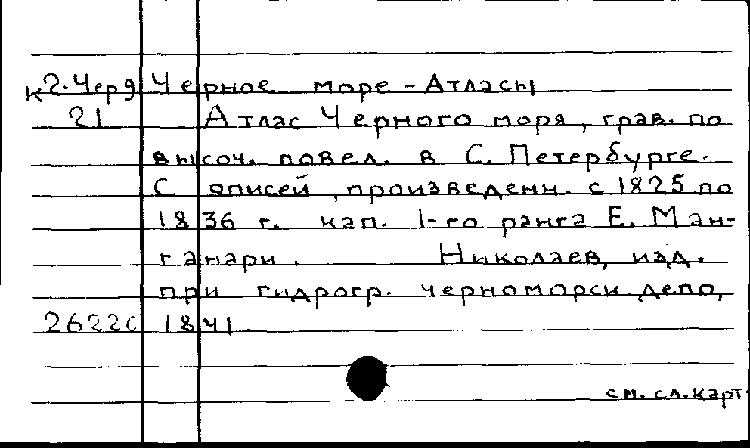 к2.Черд Черное море - Атласы
21 Атлас Черного моря, грав. по
высоч. повел. в С. Петербурге.
С описей, произведенн. с 1825 по
1836 г. кап. 1-го ранга Е. Ман-
ганари. Николаев, изд.
при гидрогр. черноморск депо,
1841
см. сл. карт